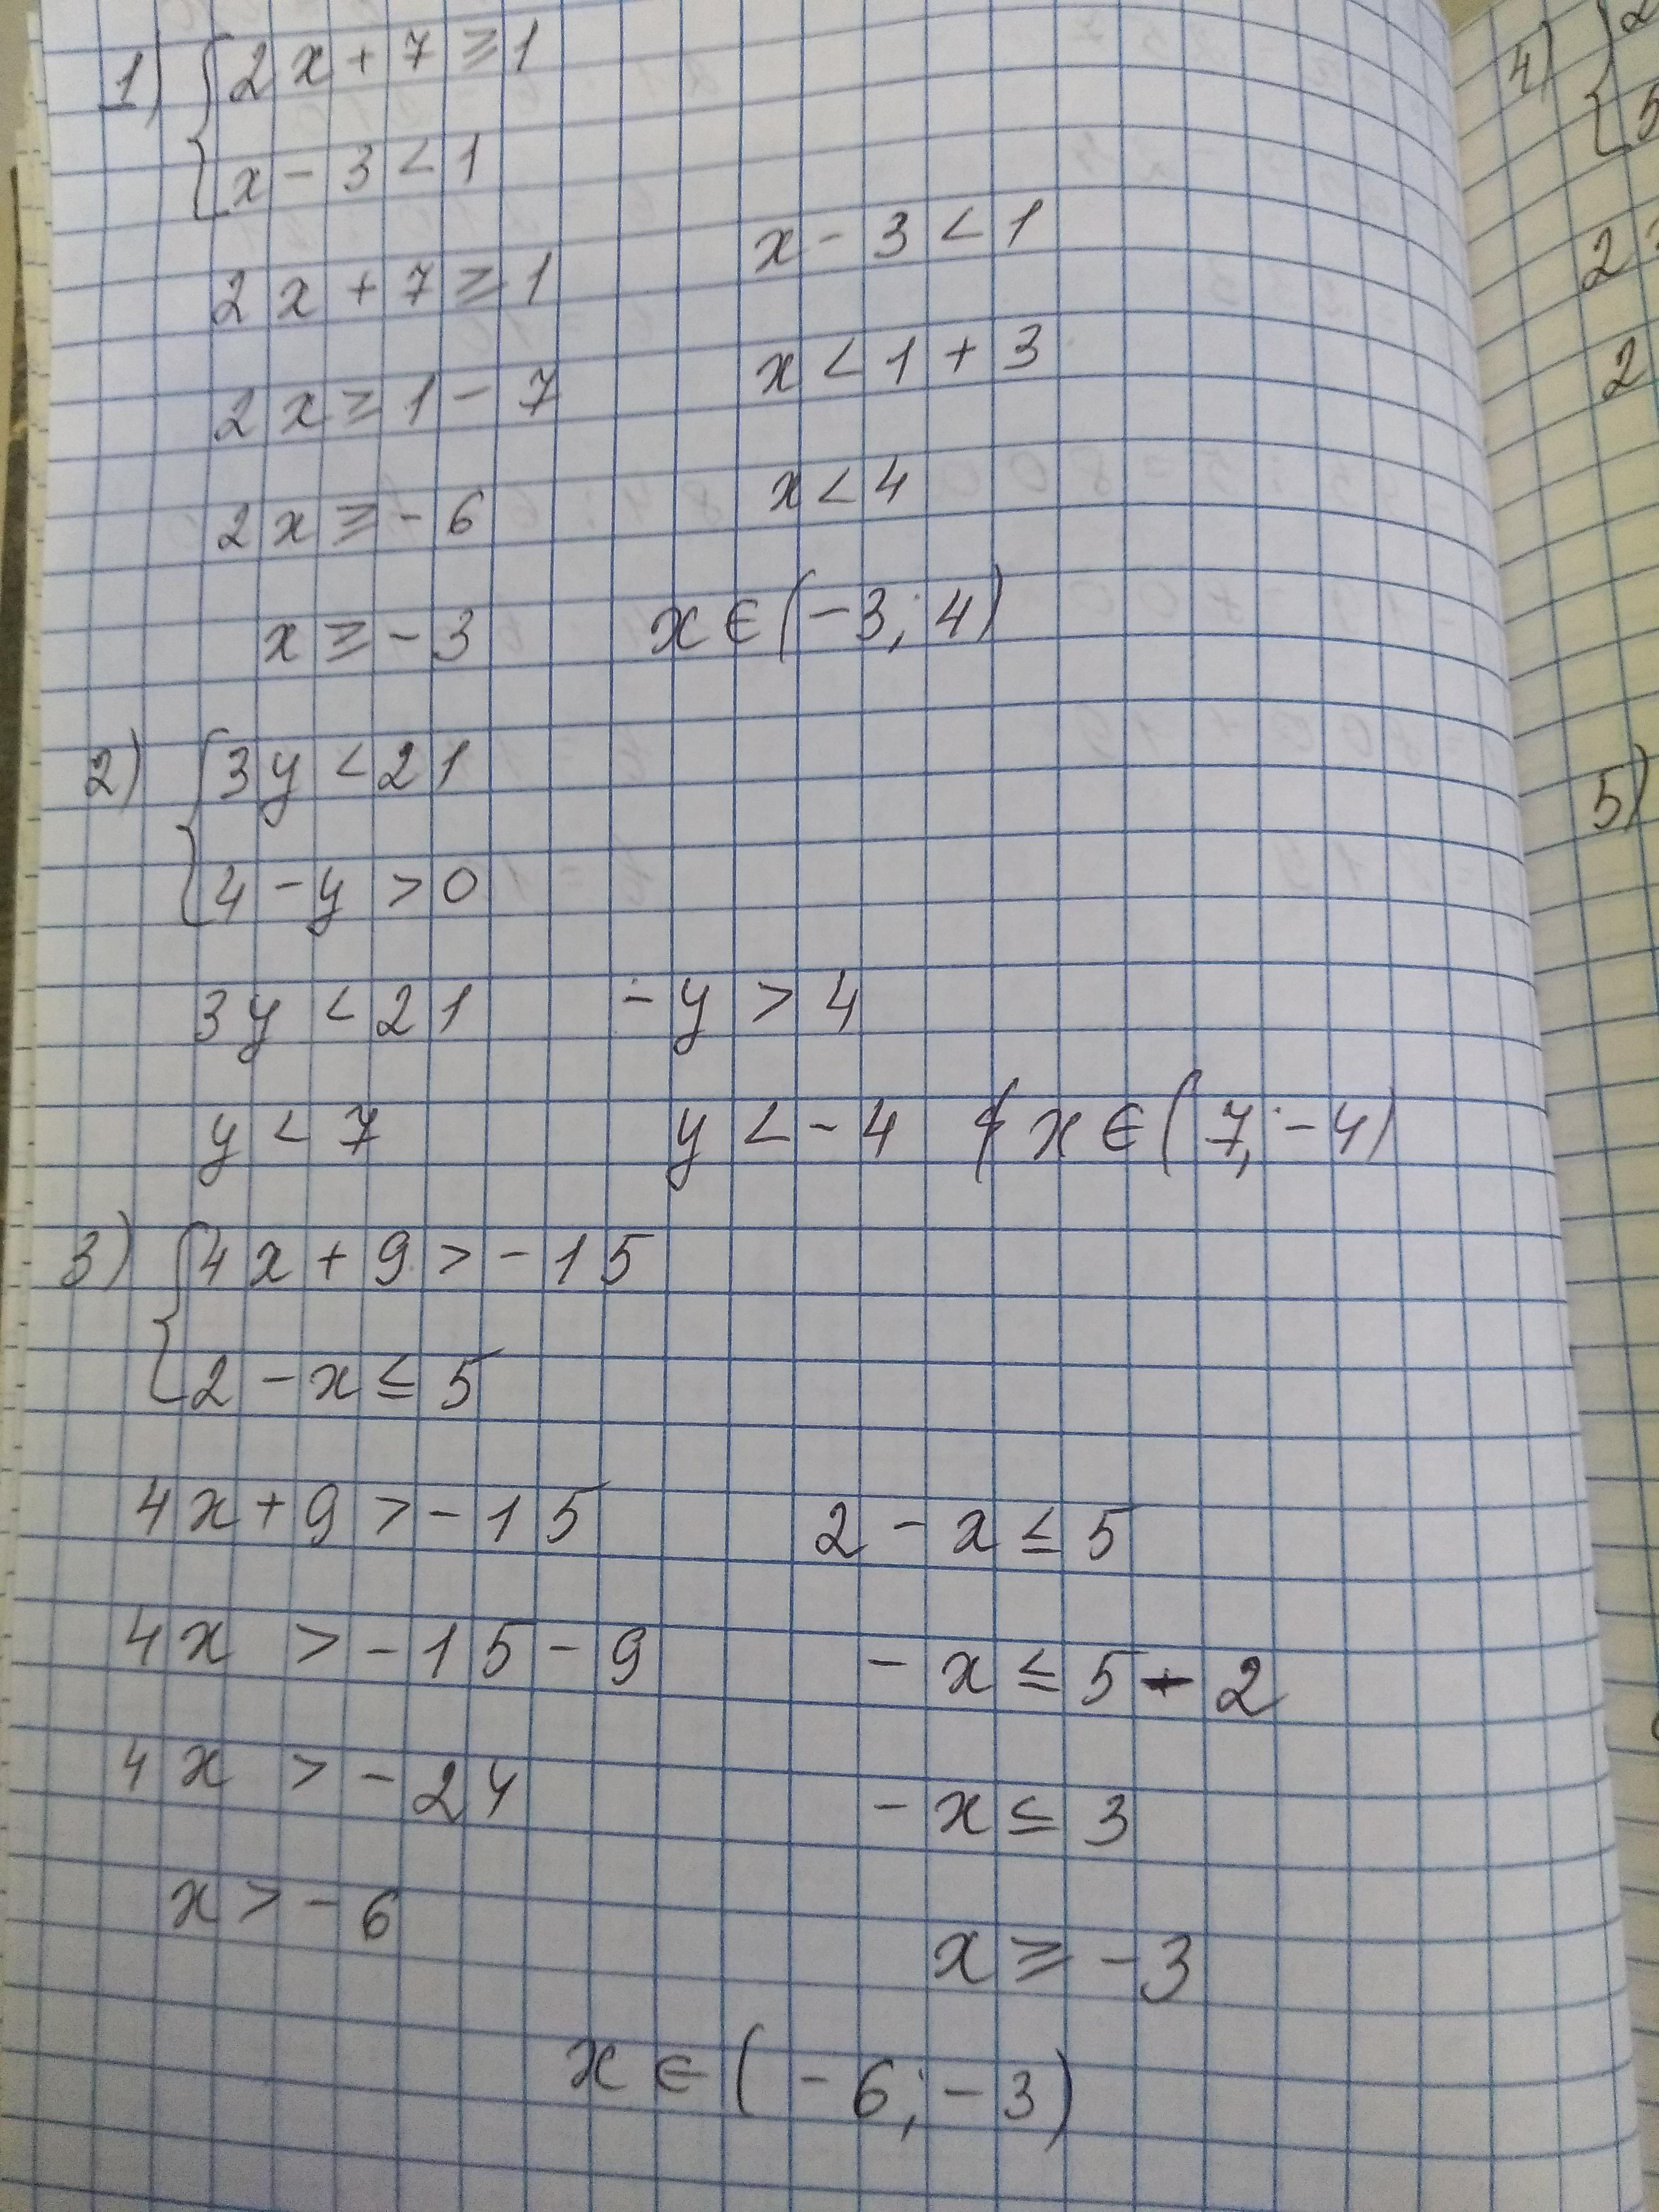 1) { 2x + 7 ≥ 1
x - 3 < 1
2x + 7 ≥ 1 x - 3 < 1
2x ≥ 1 - 7 x < 1 + 3
2x ≥ - 6 x < 4
x ≥ - 3 x ∈ (-3; 4)
2) { 3y < 21
4 - y > 0
3y < 21 - y > 4
y < 7 y < - 4 x ∈ (7; -4)
3) { 4x + 9 > - 15
2 - x ≤ 5
4x + 9 > - 15 2 - x ≤ 5
4x > - 15 - 9 - x ≤ 5 - 2
4x > - 24 - x ≤ 3
x > - 6
x ≥ - 3
x ∈ (- 6; - 3)
4) {
5
2
2
5)